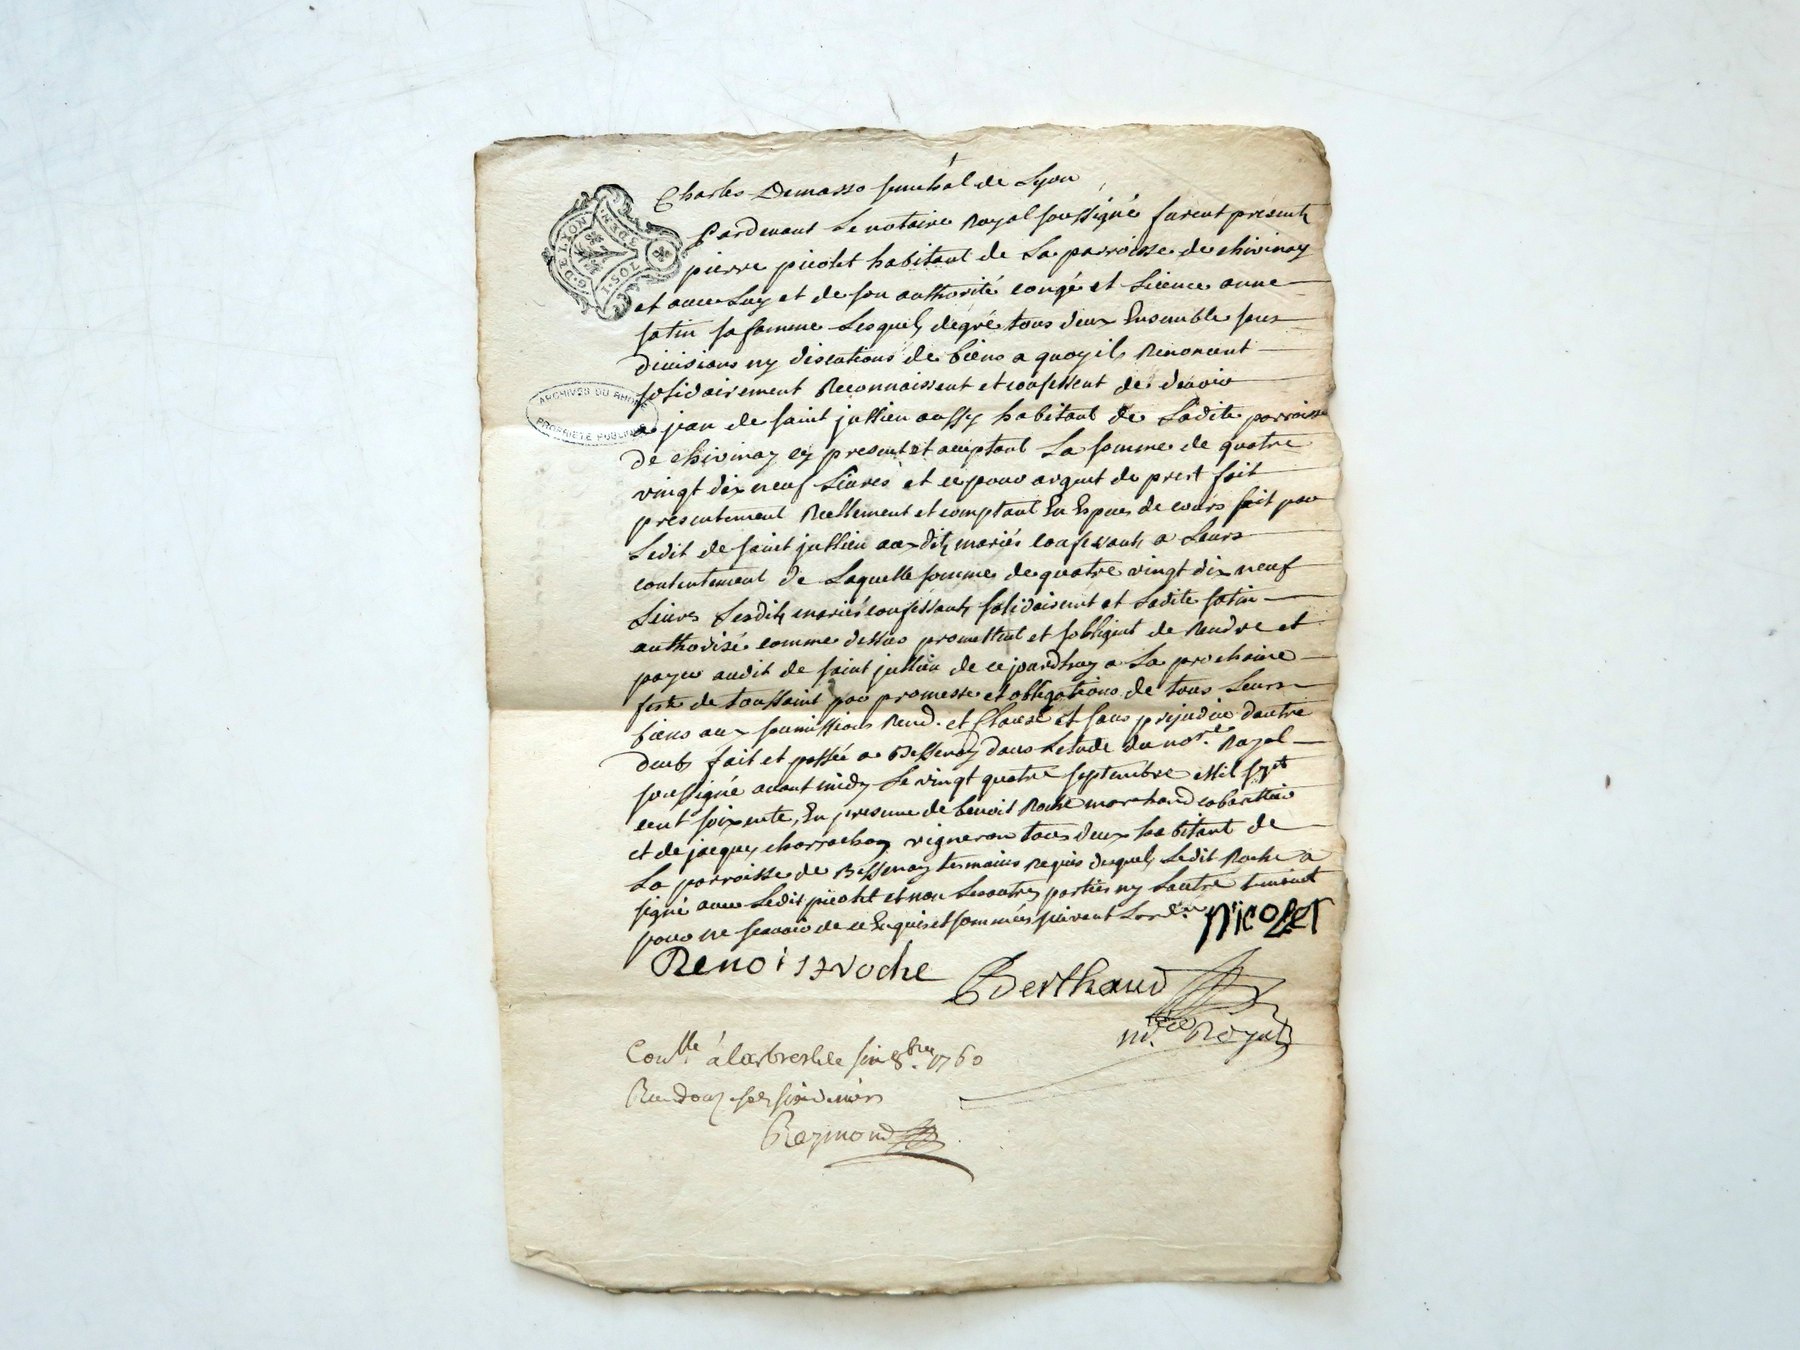 G. DE LYON
I. SOL 6 DEN
Charles Demasso senechal de Lyon
Pardevant Le notaire Royal soussigné furent presents
pierre picolet habitant de La parroisse de chivinay
et avec Luy et de son authorité congé et Licence anne
fatin sa femme Lesquels degré tous deux Ensemble sans
divisions ny discutions de biens a quoy ils Renoncent
solidairement Reconnaissent et confessent de devoir
a jean de saint jullien aussy habitant de Ladite parroisse
de chivinay cy present et acceptant La somme de quatre
vingt dix neuf Livres et ce pour argent de prest fait
presentement Reellement et comptant En Espces de cours fait par
Ledit de saint jullien auxdits mariés confessants a Leurs
contentement de Laquelle somme de quatre vingt dix neuf
Livres Lesdits mariés confessants solidairemt et Ladite fatin
authorisé comme dessus promettent et sobligent de Rendre et
payer audit de saint jullien de ce jourdhuy a La prochaine
feste de toussaint par promesse et obligations de tous Leurs
biens aux soumissions Rend. et Clause et sans prejudice dautre
deubs fait et passée a Bessenay dans Letude du nore. Royal
soussigné avant midy Le vingt quatre septembre Mil sept
cent soixente, En presence de benoit Roche marchand cabarttier
et de jacques charrachon vigneron tous deux habitant de
La parroisse de Bessenay temoins Requis desquels Ledit Roche a
signé avec Ledit picolet et non Les autres parties ny Lautre temoint
pour ne scavoir de ce Enquis et sommés suivant Lordce. picolet
Benoit roche Berthaud
nre. Royal
Conllé à larbresle le six 8bre. 1760
Reçu douze sols six deniers
Reymond
ARCHIVES DU RHONE
PROPRIETE PUBLIQUE